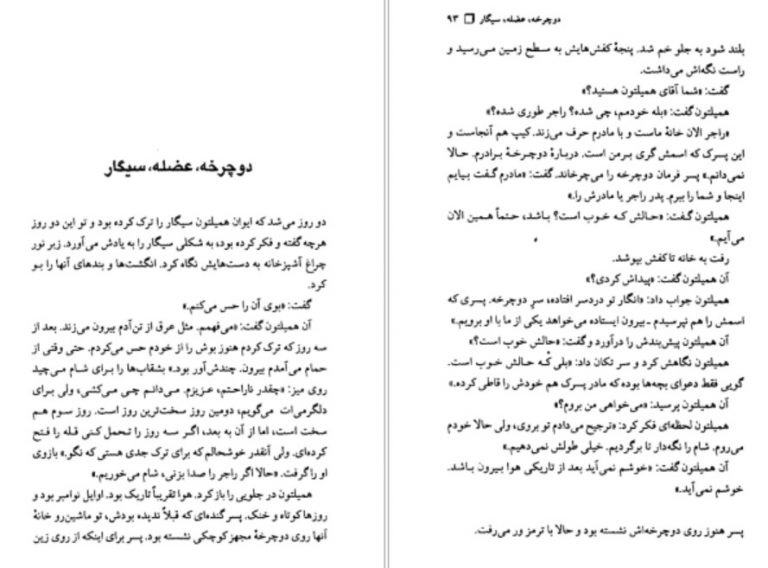 دوچرخه، عضله، سیگار
دو روز می‌شد که ایوان همیلتون سیگار را ترک کرده بود و تو این دو روز
هرچه گفته و فکر کرده بود، به شکلی سیگار را به یادش می‌آورد. زیر نور
چراغ آشپزخانه به دست‌هایش نگاه کرد. انگشت‌ها و بندهای آنها را بو
کرد.
گفت: «بوی آن را حس می‌کنم.»
آن همیلتون گفت: «می‌فهمم. مثل عرق از تن‌آدم بیرون می‌زند. بعد از
سه روز که ترک کردم هنوز بوش را از خودم حس می‌کردم. حتی وقتی از
حمام می‌آمدم بیرون. چندش‌آور بود.» بشقاب‌ها را برای شام می‌چید
روی میز: «چقدر ناراحتم، عزیزم. می‌دانم چی می‌کشی، ولی برای
دلگرمی‌ات می‌گویم، دومین روز سخت‌ترین روز است. روز سوم هم
سخت است، اما از آن به بعد، اگر سه روز را تحمل کنی قله را فتح
کرده‌ای. ولی آنقدر خوشحالم که برای ترک جدی هستی که نگو.» بازوی
او را گرفت. «حالا اگر راجر را صدا بزنی، شام می‌خوریم.»
همیلتون در جلویی را باز کرد. هوا تقریباً تاریک بود. اوایل نوامبر بود و
روزها کوتاه و خنک. پسر گنده‌ای که قبلاً ندیده بودش، تو ماشین‌رو خانهٔ
آنها روی دوچرخهٔ مجهز کوچکی نشسته بود. پسر برای اینکه از روی زین
دوچرخه، عضله، سیگار ❒ ۹۳
بلند شود به جلو خم شد. پنجهٔ کفش‌هایش به سطح زمین می‌رسید و
راست نگه‌اش می‌داشت.
گفت: «شما آقای همیلتون هستید؟»
همیلتون گفت: «بله خودمم، چی شده؟ راجر طوری شده؟»
«راجر الان خانهٔ ماست و با مادرم حرف می‌زند. کیپ هم آنجاست و
این پسرک که اسمش گری برمن است. دربارهٔ دوچرخهٔ برادرم. حالا
نمی‌دانم.» پسر فرمان دوچرخه را می‌چرخاند. گفت: «مادرم گفت بیایم
اینجا و شما را ببرم. پدر راجر یا مادرش را.»
همیلتون گفت: «حالش که خوب است؟ باشد، حتماً همین الان
می‌آیم.»
رفت به خانه تا کفش بپوشد.
آن همیلتون گفت: «پیداش کردی؟»
همیلتون جواب داد: «انگار تو دردسر افتاده، سرِ دوچرخه. پسری که
اسمش را هم نپرسیدم ـ بیرون ایستاده می‌خواهد یکی از ما با او برویم.»
آن همیلتون پیش‌بندش را درآورد و گفت: «حالش خوب است؟»
همیلتون نگاهش کرد و سر تکان داد: «بلی که حالش خوب است.
گویی فقط دعوای بچه‌ها بوده که مادر پسرک هم خودش را قاطی کرده.»
آن همیلتون پرسید: «می‌خواهی من بروم؟»
همیلتون لحظه‌ای فکر کرد: «ترجیح می‌دادم تو بروی، ولی حالا خودم
می‌روم. شام را نگه‌دار تا برگردیم. خیلی طولش نمی‌دهیم.»
آن همیلتون گفت: «خوشم نمی‌آید بعد از تاریکی هوا بیرون باشد.
خوشم نمی‌آید.»
پسر هنوز روی دوچرخه‌اش نشسته بود و حالا با ترمز ور می‌رفت.